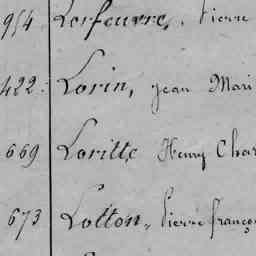 954 Lerfeuvre, Pierre
422. Lorin, Jean Mari
669 Loritte Henry Char
673 Lotton, Pierre franço